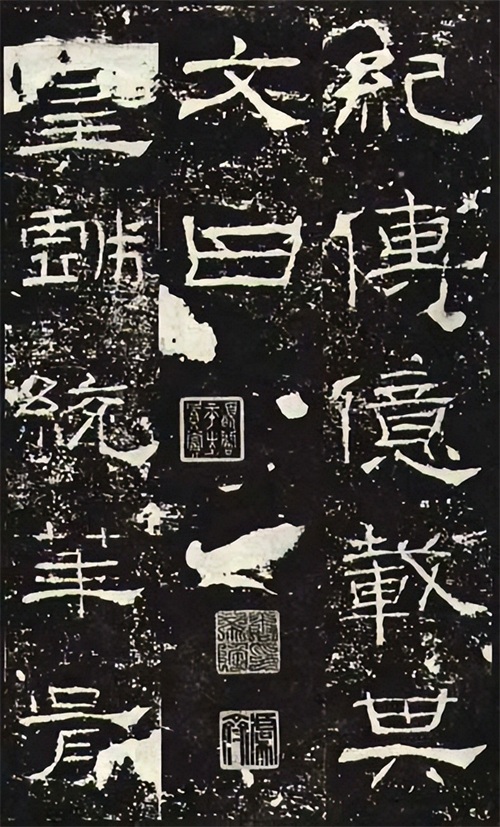 紀傳億載其
文曰
皇戲統華胥